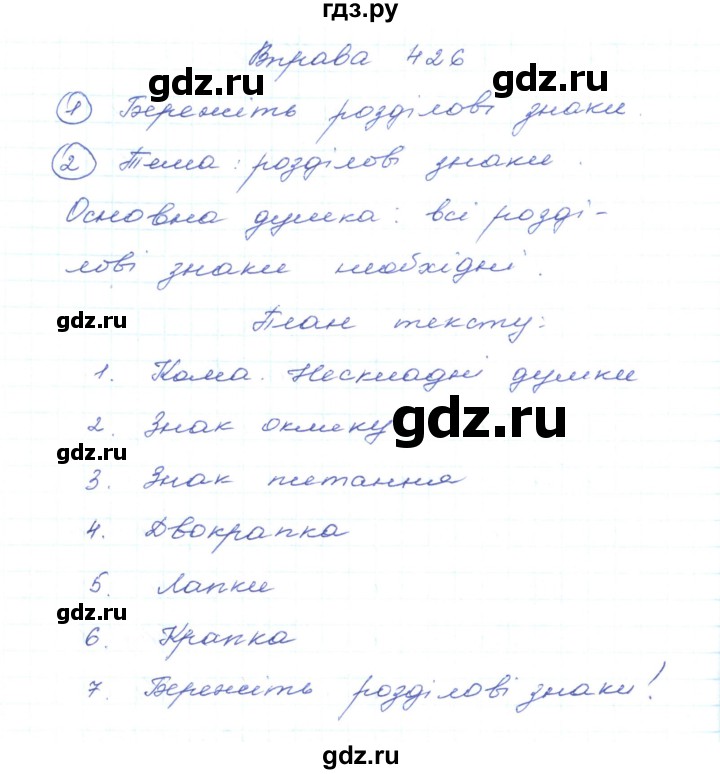 гдз.ру
Вправа 426
gdz.ru gdz.ru
1 Бережіть розділові знаки.
2 Тема: розділові знаки.
Основна думка: всі розді-
лові знаки необхідні.
gdz.ru
План тексту:
1. Кома. Нескладні думки
2. Знак оклику
gdz.ru
gdz.ru
3. Знак питання
4. Двокрапка
5. Лапки
gdz.ru
6. Крапка
7. Бережіть розділові знаки!
gdz.ru